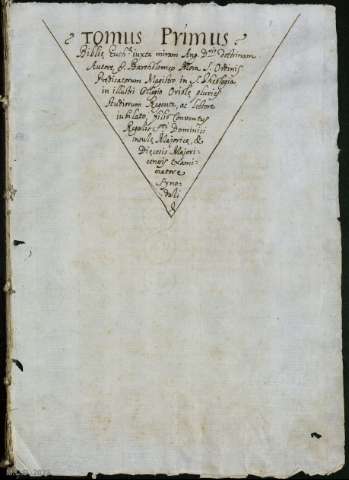 Tomus Primus
Bibliæ Euch.æ iuxta miram Ang. D.ris Doctrinam
Autore F. Bartholomeo S. Ordinis
Prædicatorum Magistro in S. Theologia
in illustri Collegio Oriolæ pluries
studiorum Regente, ac lectore
iubilato, filio Conventus
Regalis S.ti Dominici
insulæ Majoricæ, &
Diecesis Majori-
censis Exami-
natore
syno-
dali
&